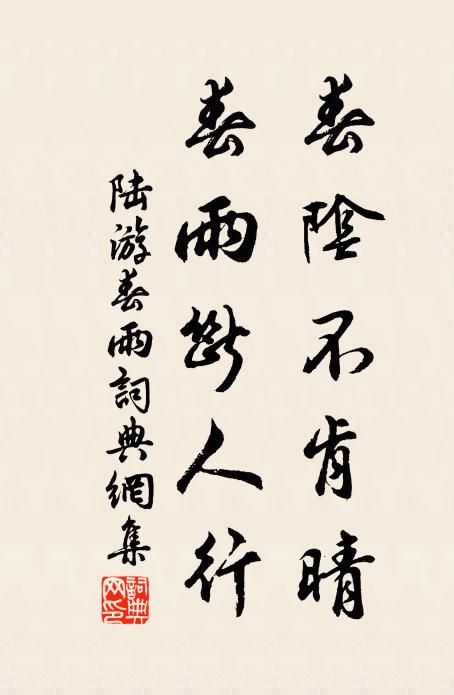 春陰不肯晴
春雨斷人行
陆游春雨詞典網集
詞典网印